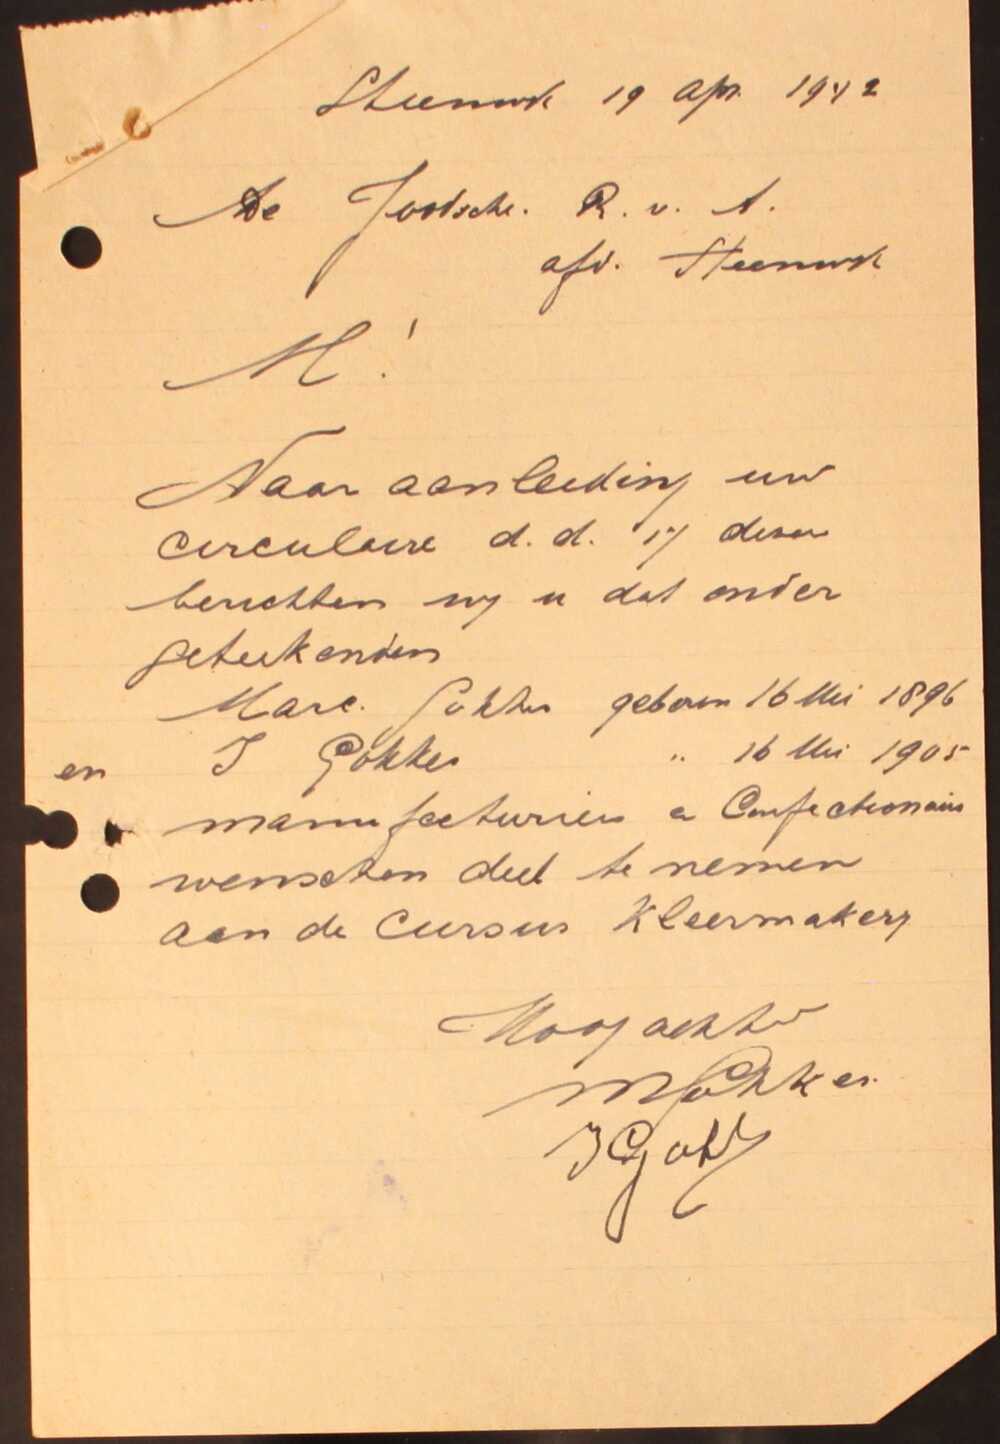 Steenwyk 19 Apr. 1942
De Joodsche. R. v. A.
afd. Steenwyk
M!
Naar aanleiding uw
circulaire d.d. 17 dezer
berichten wy u dat onder
geteekenden
Marc. Gokkes geboren 16 Mei 1896
en J Gokkes " 16 Mei 1905
manufacturier en Confectionair
wenschen deel te nemen
aan de Cursus Kleermakery
Hoogachtend
M Gokkes